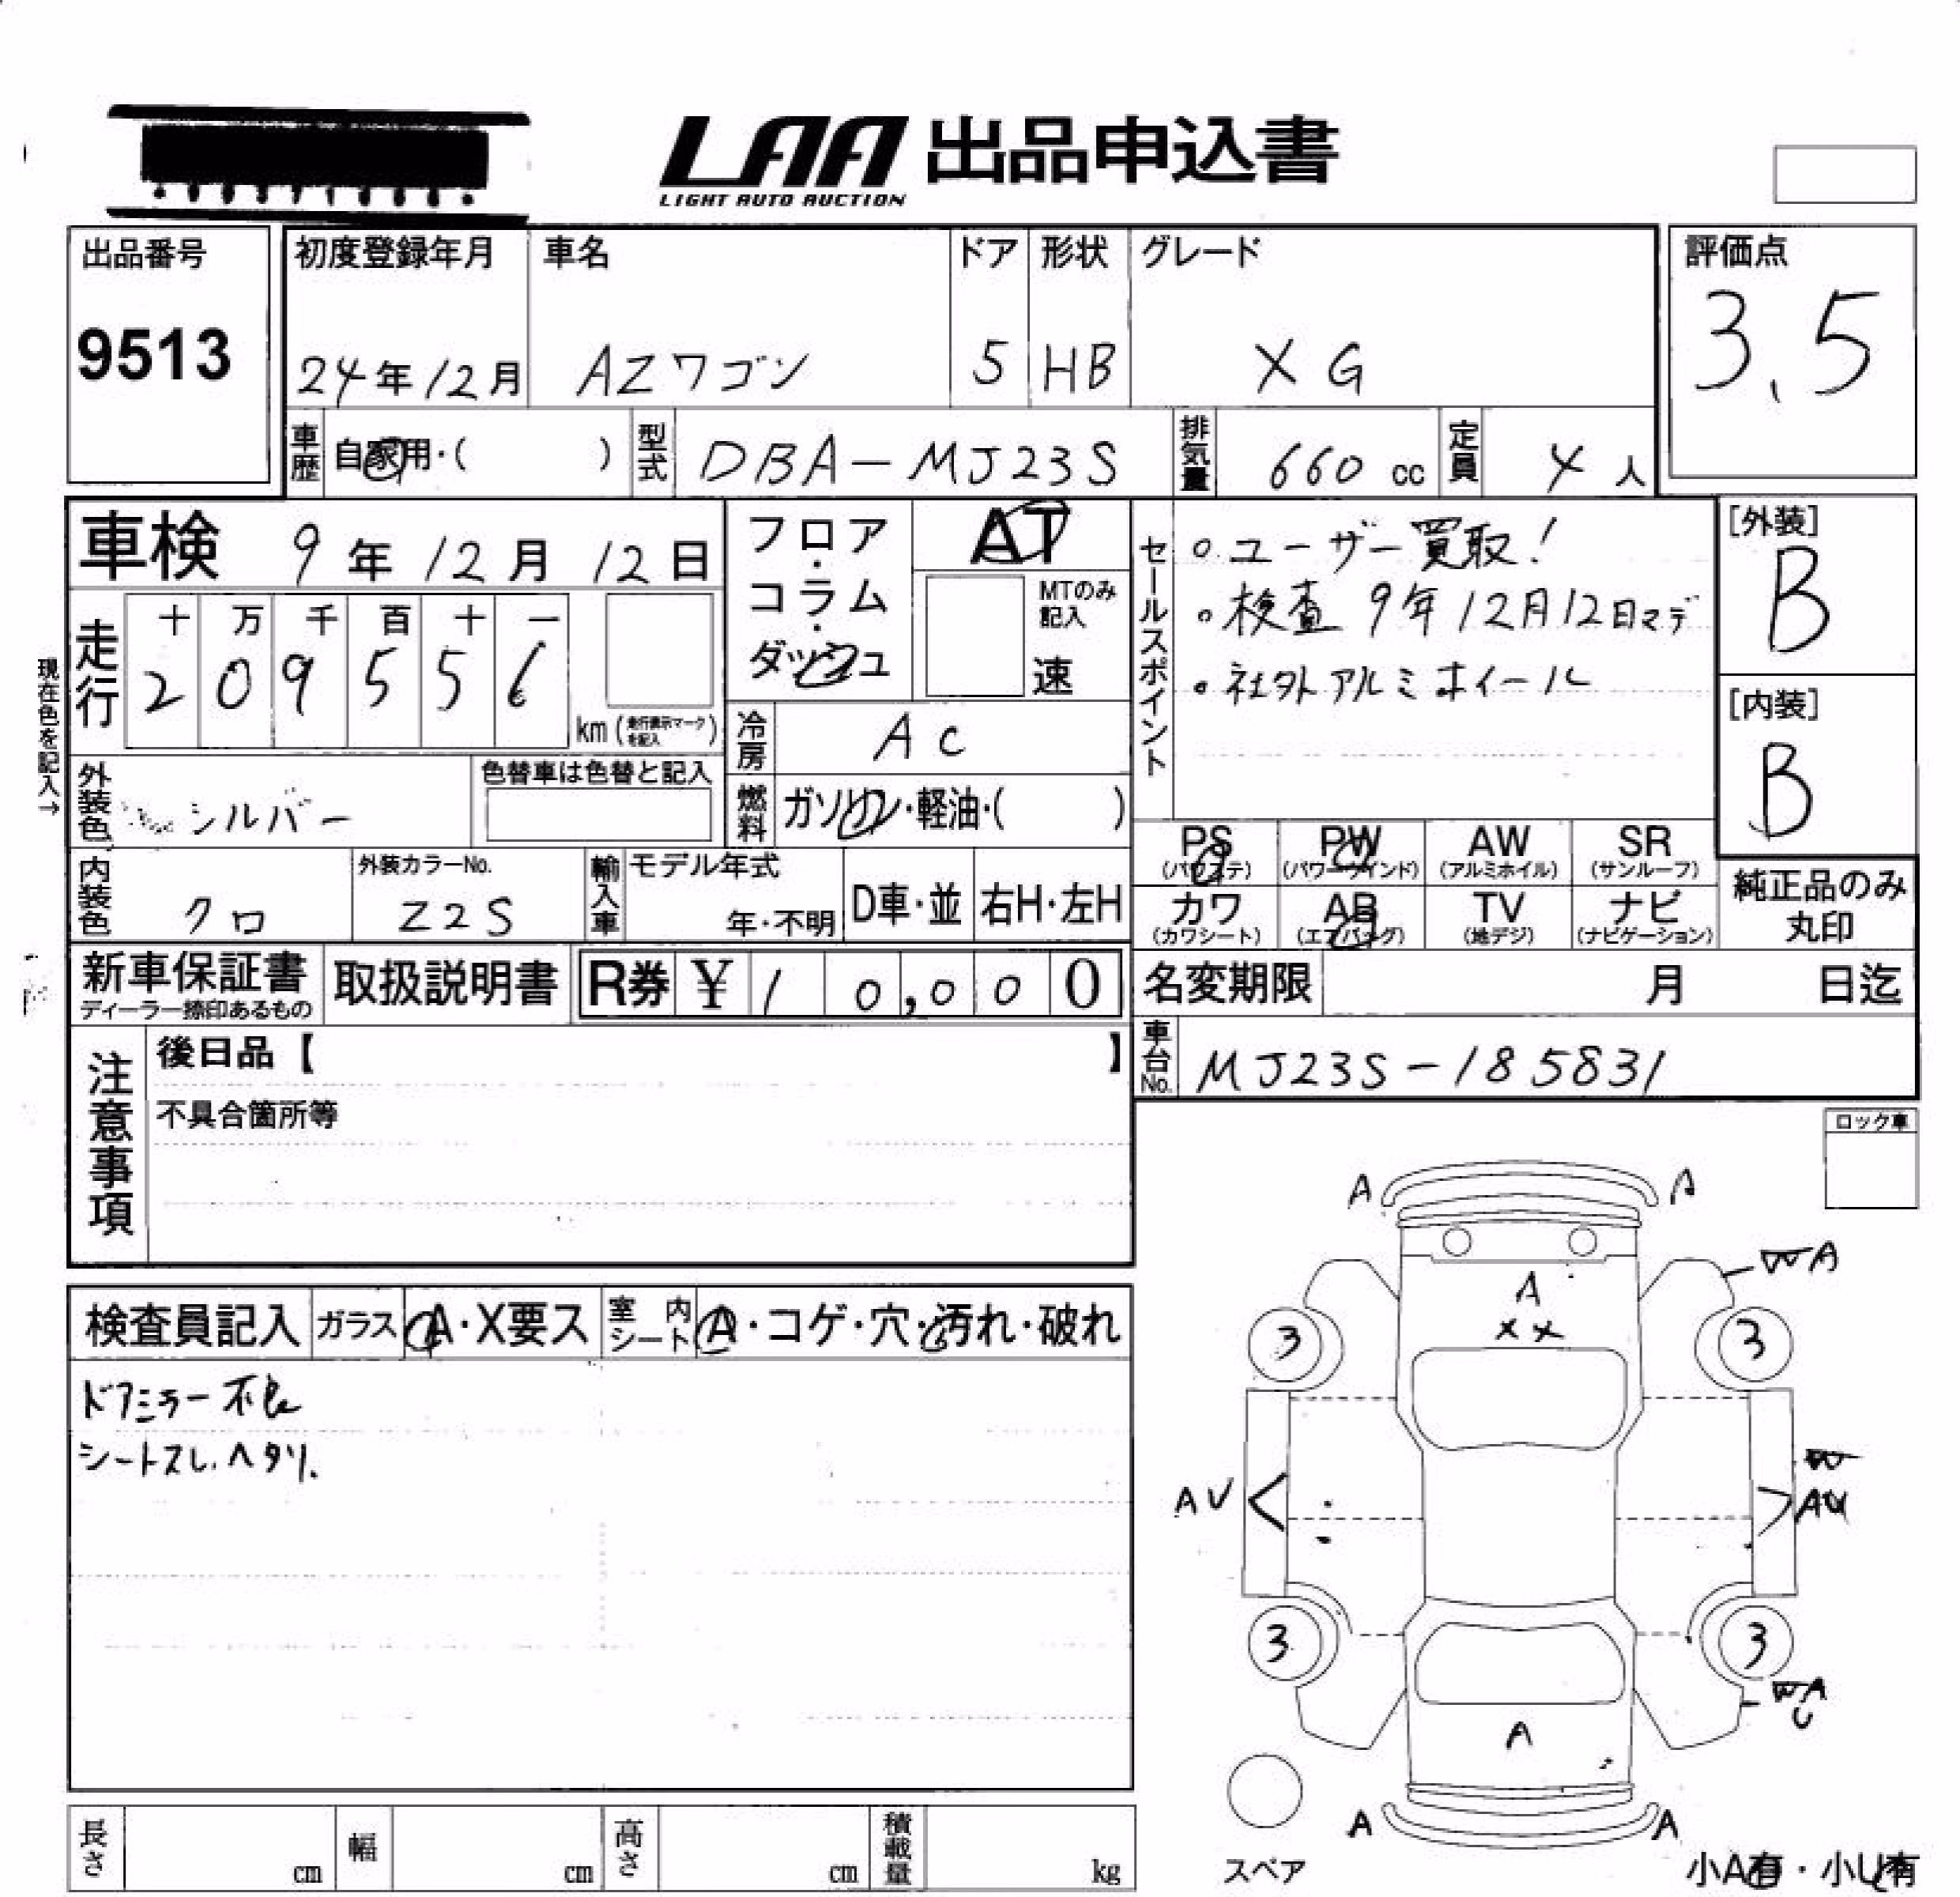 LAA 出品申込書
LIGHT AUTO AUCTION
出品番号
9513
初度登録年月
24年12月
車名
AZワゴン
ドア
5
形状
HB
グレード
XG
評価点
3.5
車歴 自家用・( )
型式 DBA-MJ23S
排気量 660 cc
定員 4人
車検 9年12月12日
フロア・コラム・ダッシュ
AT
MTのみ記入
速
セールスポイント
。ユーザー買取!
。検査 9年12月12日マデ
。社外アルミホイール
[外装]
B
[内装]
B
現在色を記入→
走行
十 万 千 百 十 一
2 0 9 5 5 6
km (走行表示マークを記入)
冷房 AC
外装色 シルバー
色替車は色替と記入
燃料 ガソリン・軽油・( )
PS (パワステ)
PW (パワーウインド)
AW (アルミホイル)
SR (サンルーフ)
カワ (カワシート)
AB (エアバッグ)
TV (地デジ)
ナビ (ナビゲーション)
純正品のみ丸印
内装色 クロ
外装カラーNo.
Z2S
輸入車
モデル年式
年・不明
D車・並
右H・左H
新車保証書
ディーラー捺印あるもの
取扱説明書
R券 ¥ 10,000
名変期限 月 日迄
注意事項
後日品【 】
不具合箇所等
車台No. MJ23S-185831
ロック車
検査員記入
ガラス A・X要ス
室内シート A・コゲ・穴・汚れ・破れ
ドアミラー不良
シートスレ.ヘタリ.
A A
A
XX
W A
3 3
W
AU
3 3
W A
U
A
A A
スペア
小A有・小U有
長さ cm
幅 cm
高さ cm
積載量 kg